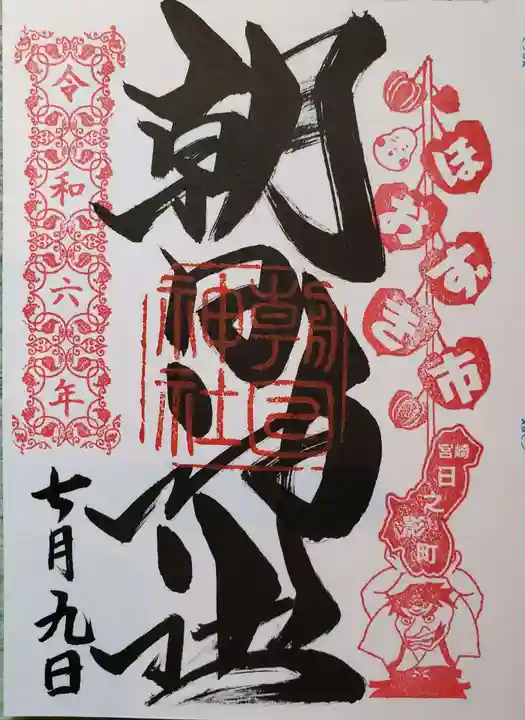 ほおずき市
宮崎
日之影町
朝日神社
朝日
神社
令和六年
七月九日